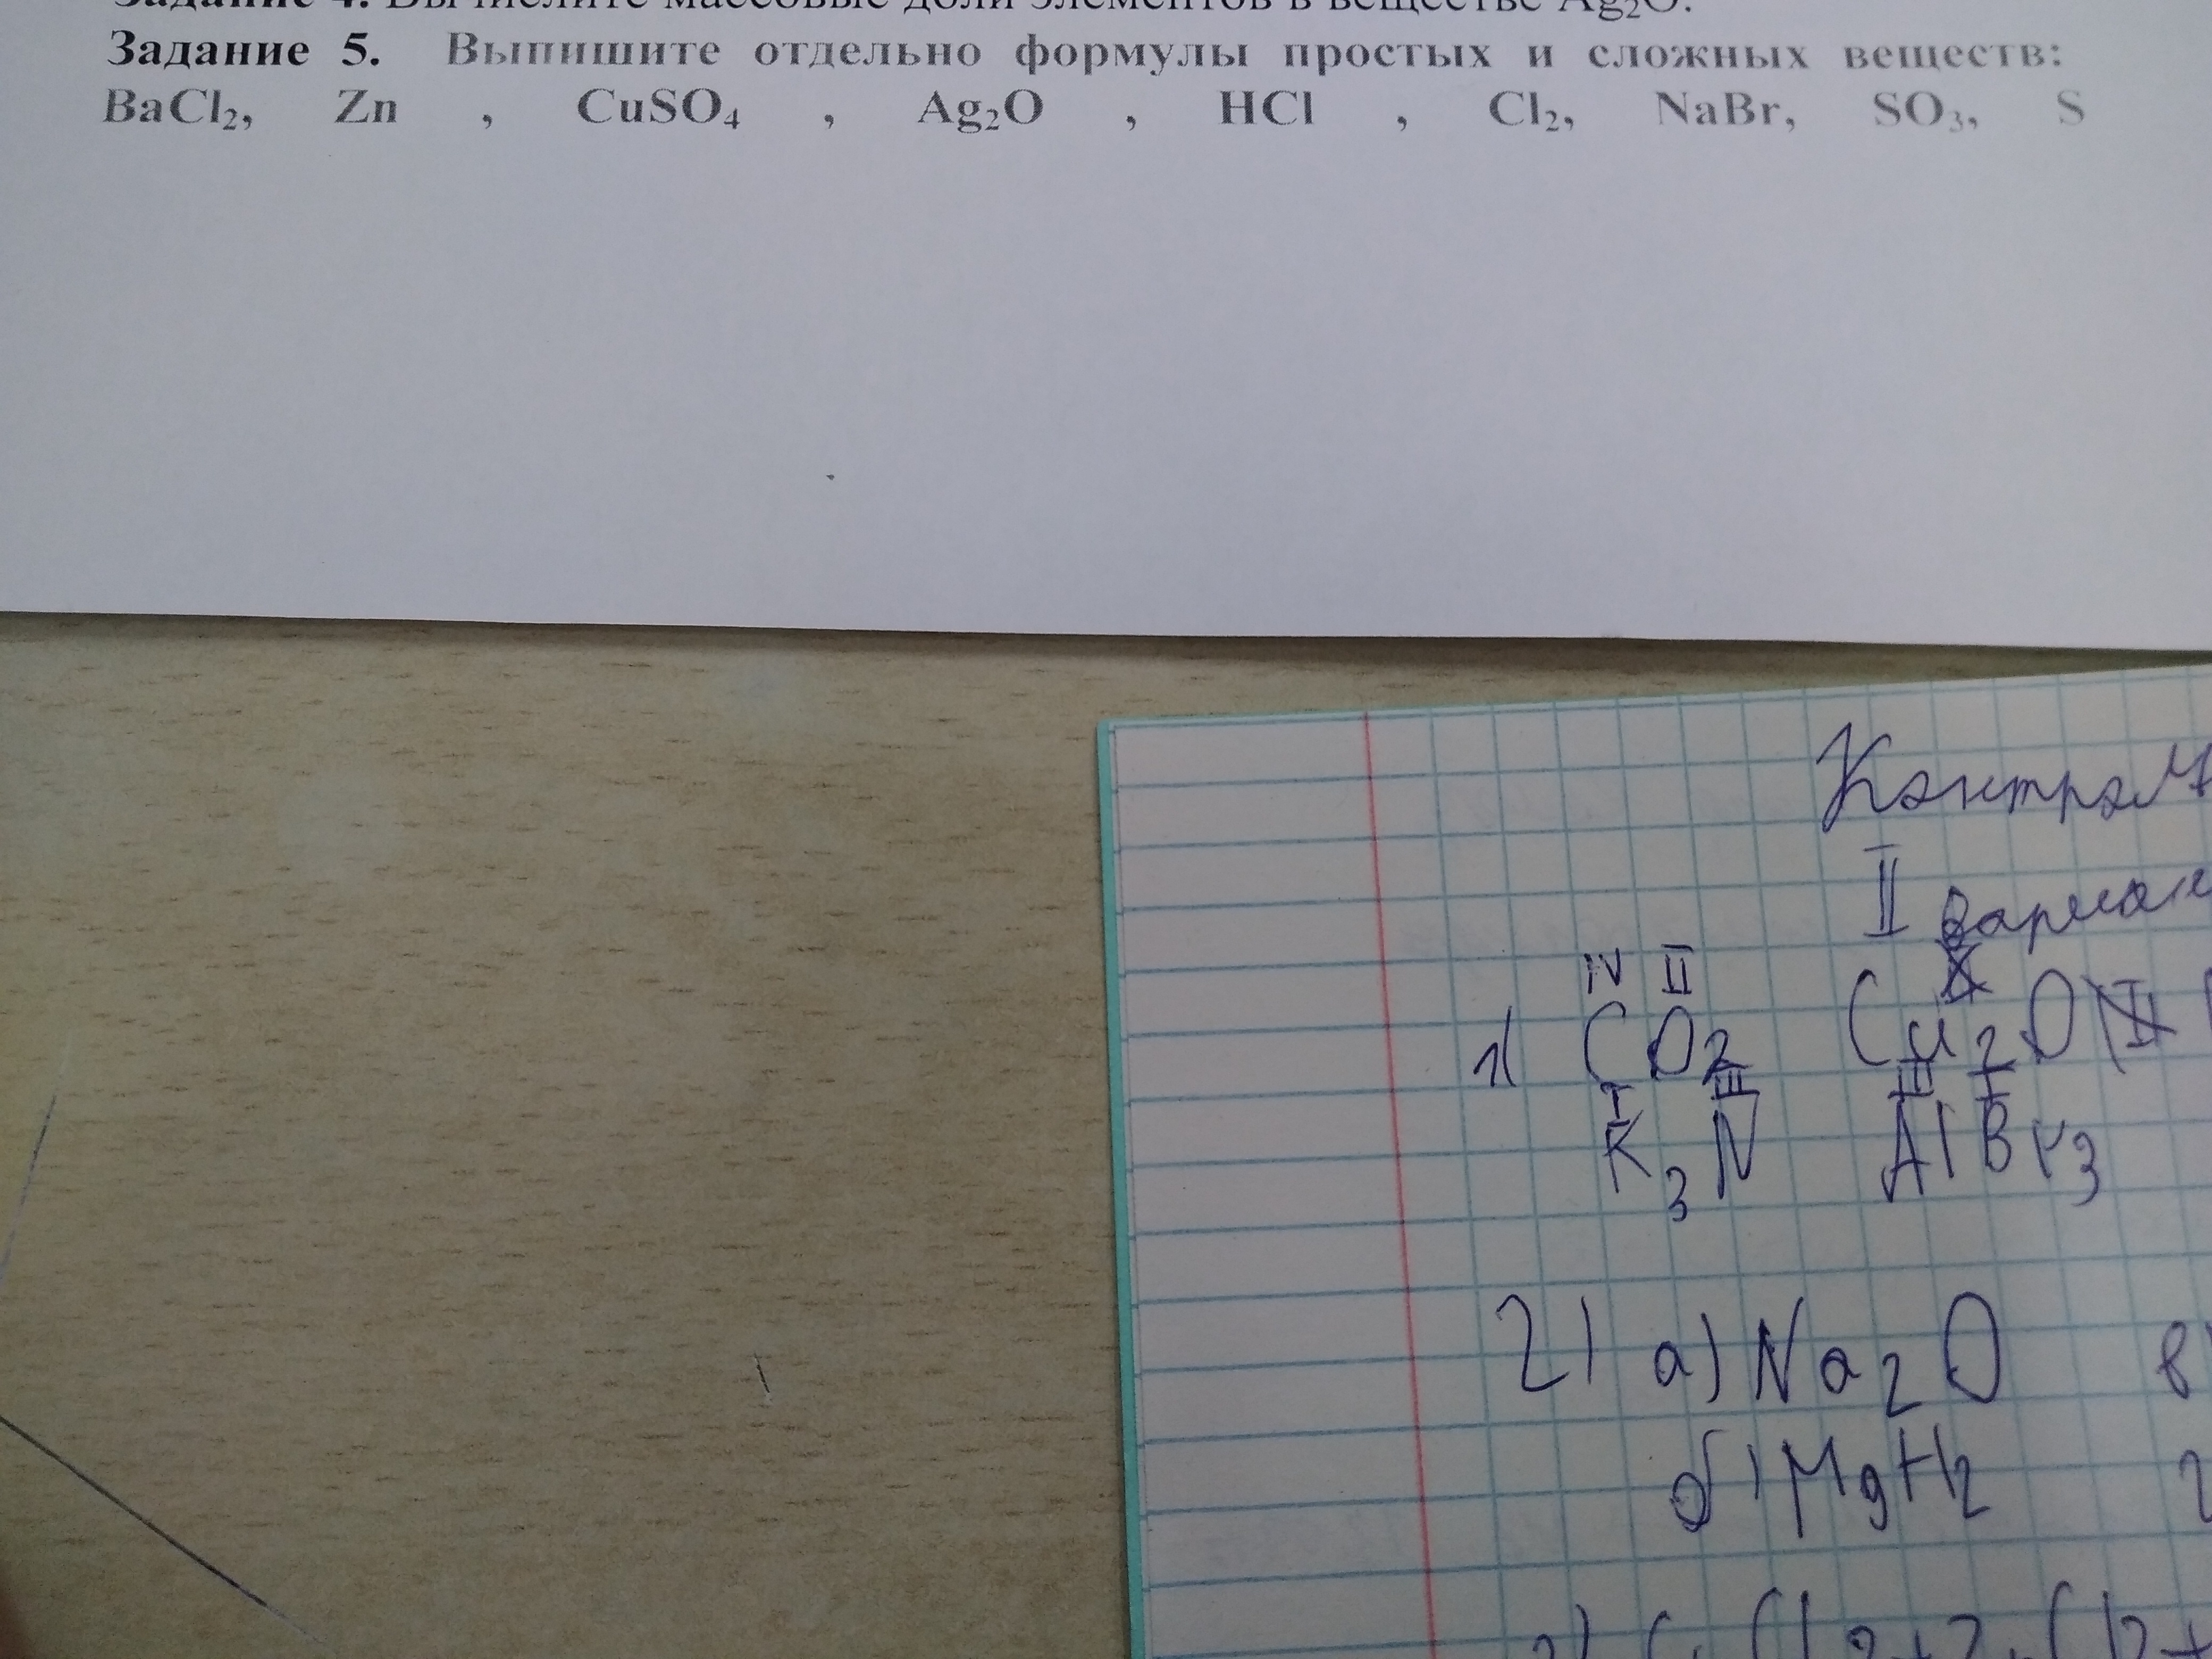 Задание 4. Вычислите массовые доли элементов в веществе Ag₂O.
Задание 5. Выпишите отдельно формулы простых и сложных веществ:
BaCl₂, Zn , CuSO₄ , Ag₂O , HCl , Cl₂, NaBr, SO₃, S
II
IV II
1) CO₂ Cu₂O
I III III I
K₃N AlBr₃
2) а) Na₂O в)
б) MgH₂